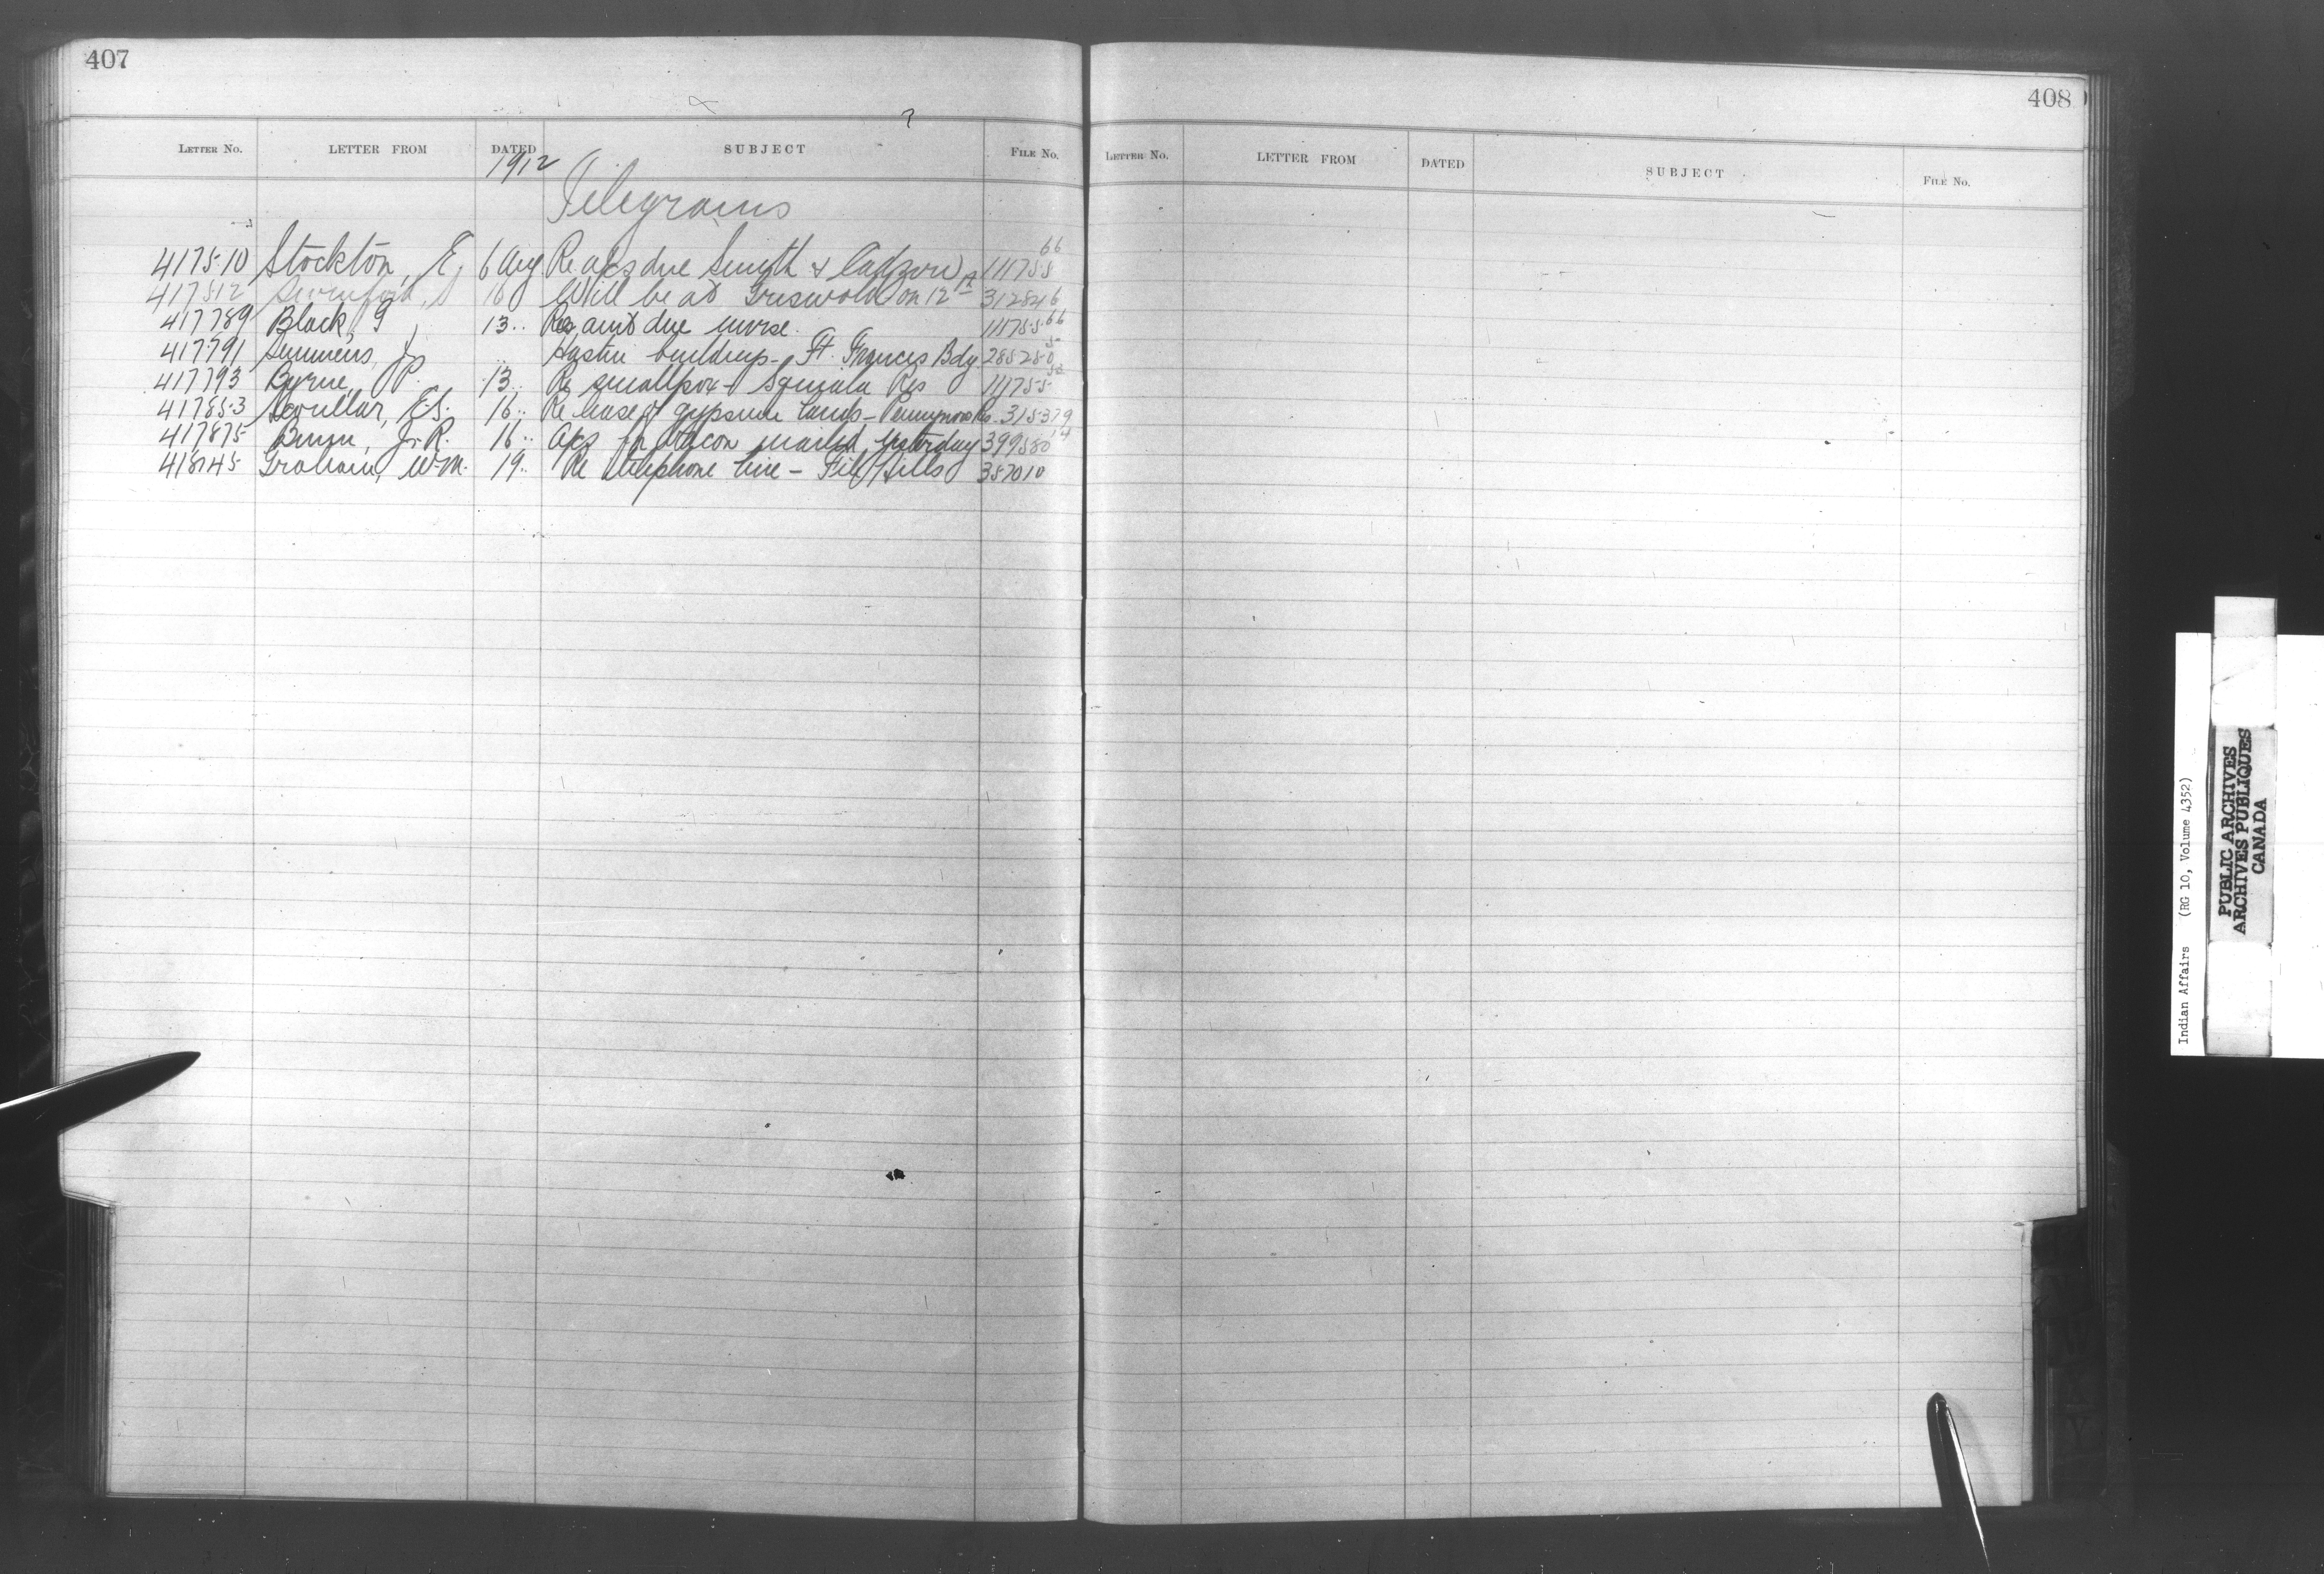 407
LETTER NO. LETTER FROM DATED SUBJECT FILE NO.
1912
Telegrams
417510 Stockton, E, 6 Aug Re a/cs due Smith & 111755 66
417512 S 10 Will be at Griswold on 12th 312846
417789 Black, G 13 .. Re amt due nurse. 111755 66
417791 Semmens, J .. buildup - Ft. Frances Bdg 285280 5
417793 Byrne, P. 13 .. Re smallpox - Squiala Res 111755
417853 Scoullar, E.S. 16 .. Re lease of gypsum lands - Res. 315379
417875 J. R. 16 .. a/cs for bacon mailed yesterday 399580 14
418145 Graham, W.M. 19 .. Re telephone line - File Hills 357010
408
LETTER NO. LETTER FROM DATED SUBJECT FILE NO.
Indian Affairs (RG 10, Volume 4352)
PUBLIC ARCHIVES
ARCHIVES PUBLIQUES
CANADA